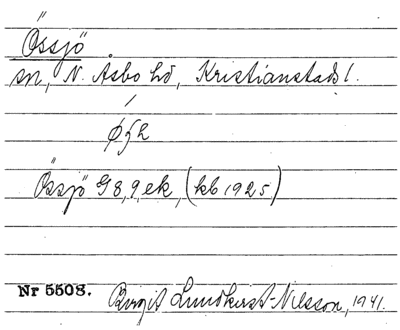 Össjö
sn, N. Åsbo hd, Kristianstads l.
Össjö G8,9,ek, (kb 1925)
Nr 5508. Birgit Lundkvist-Nilsson, 1941.